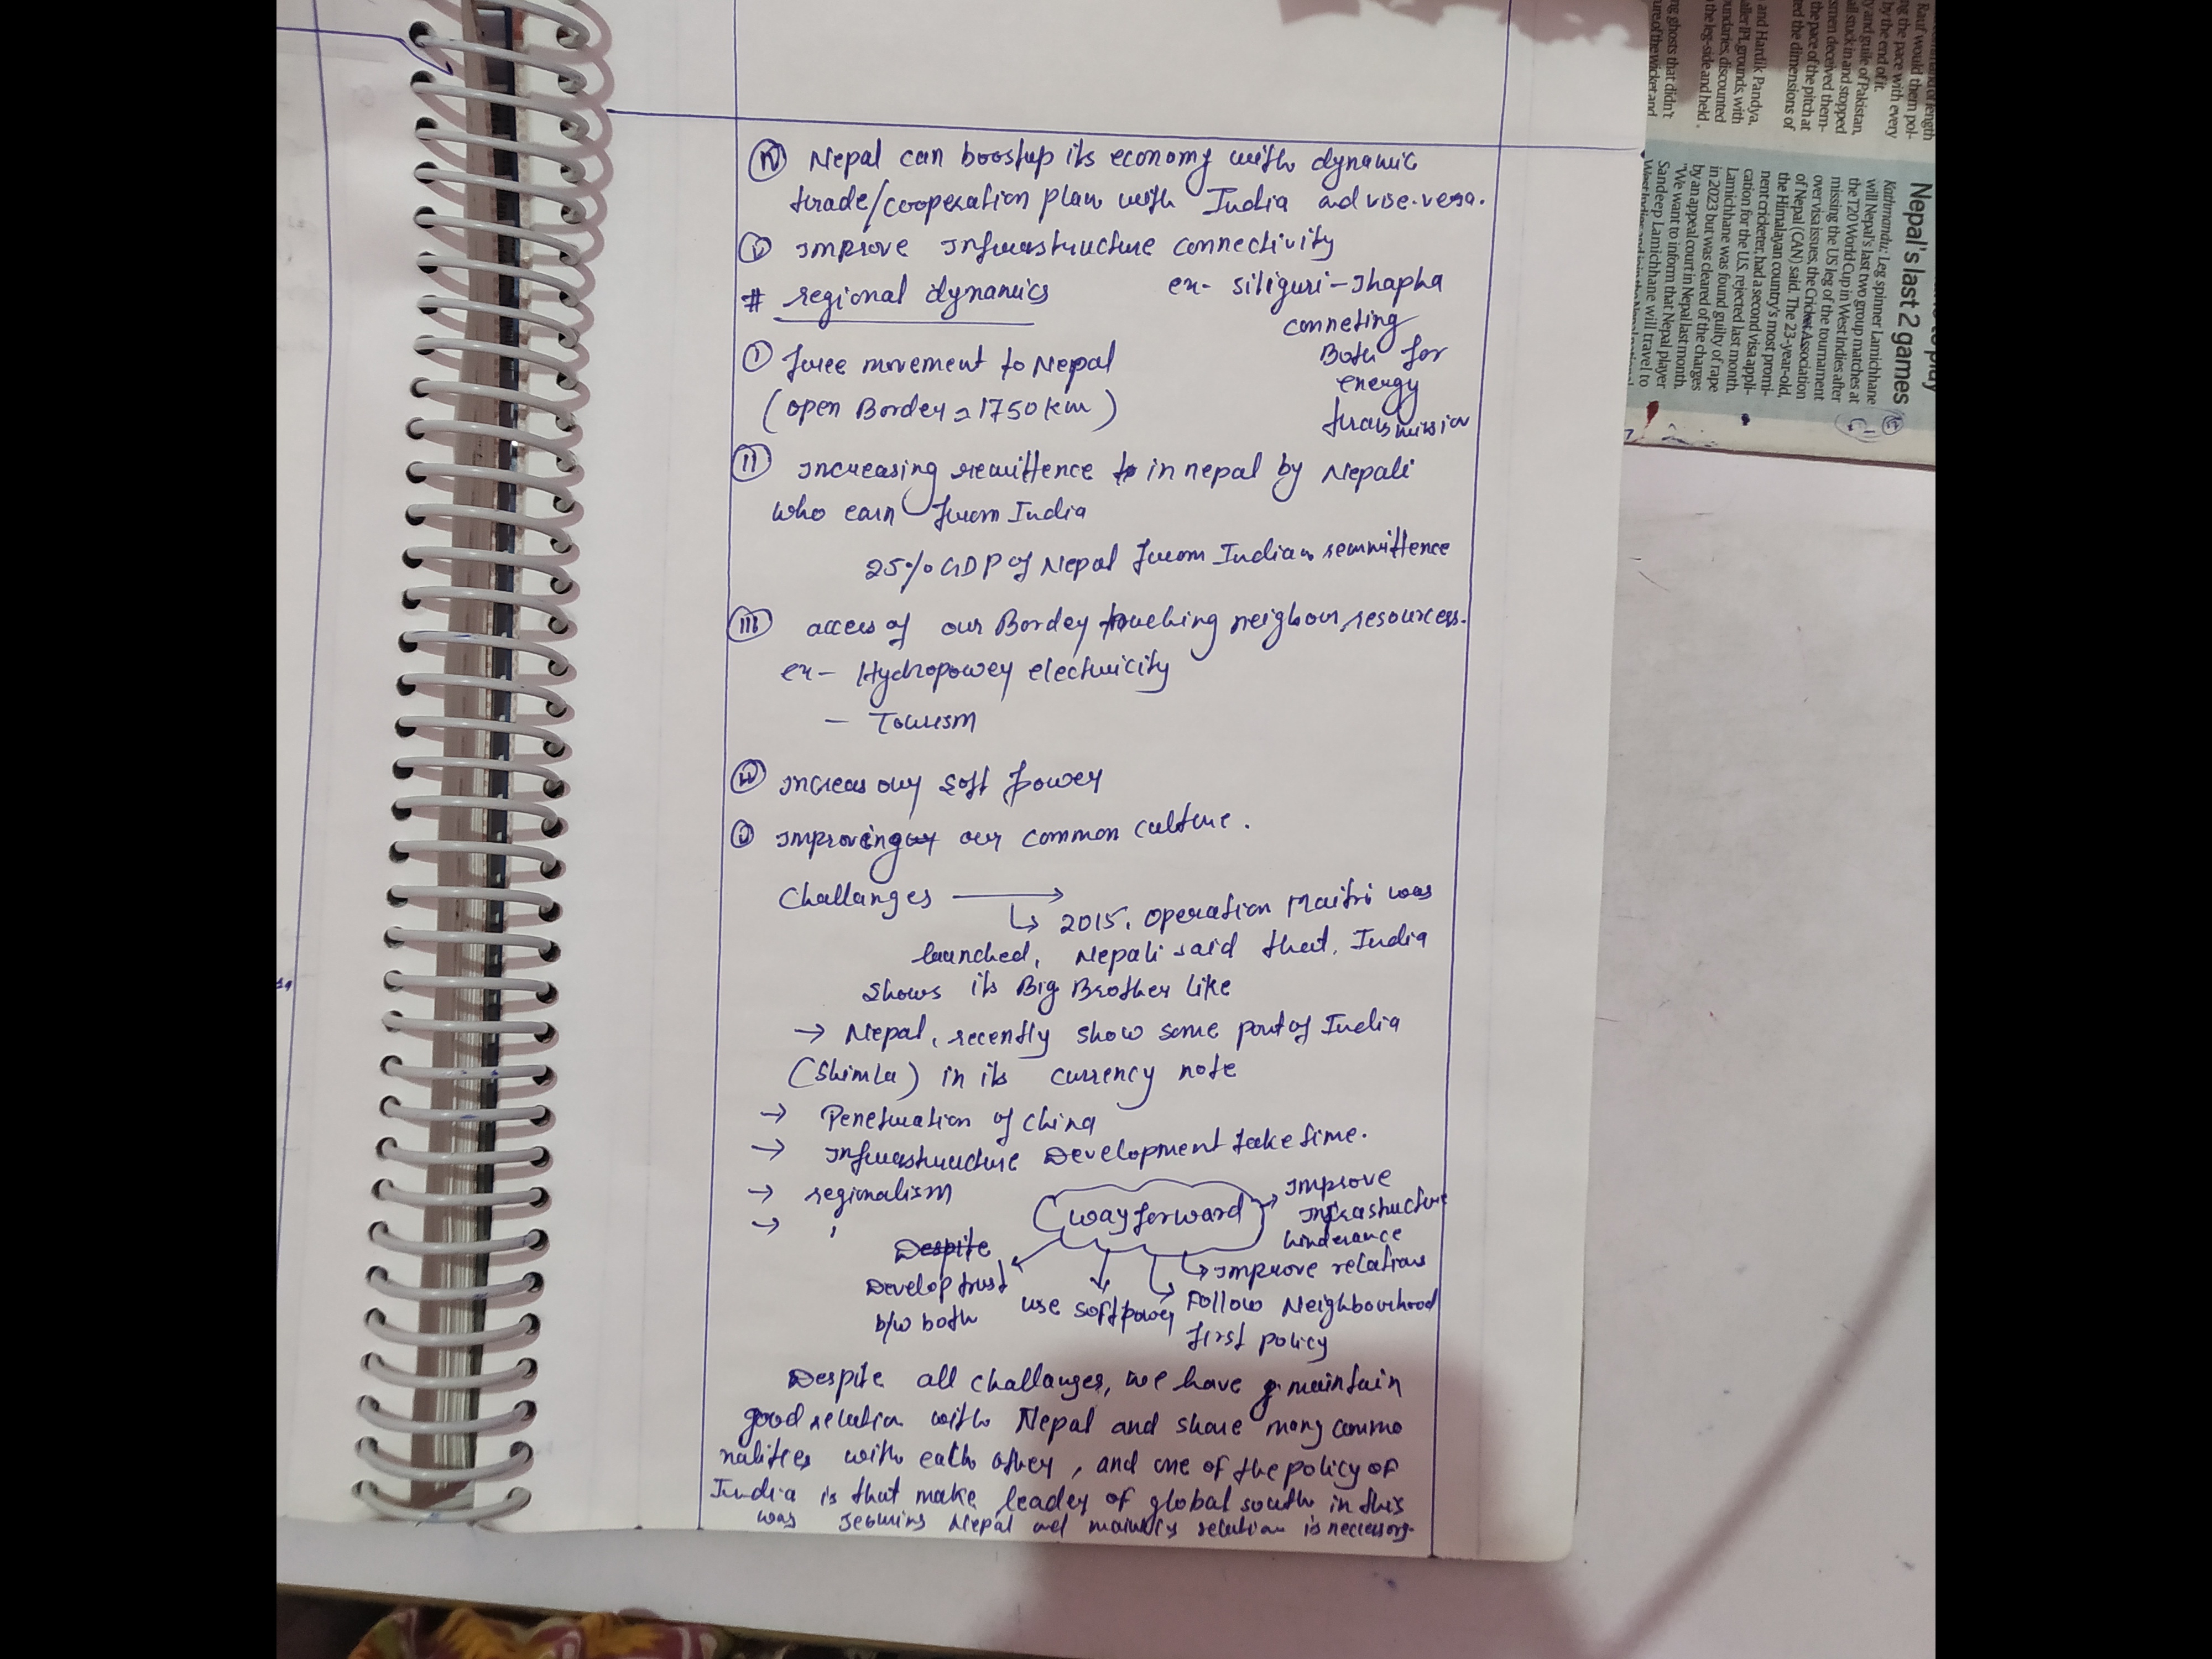 (iv) Nepal can boostup its economy with dynamic
trade/cooperation plan with India and vise-versa.
(v) Improve Infrastructure connectivity
ex- Siliguri-Jhapha
conneting
Both for
energy
transmission
# regional dynamics
(i) free movement to Nepal
(open Border = 1750 km)
(ii) Increasing remittence in nepal by Nepali
who earn from India
25% GDP of Nepal from Indian remmittence
(iii) access of our Border touching neighour, resources.
ex- Hydropower electricity
- Tourism
(iv) increas our soft power
(v) Improving our common culture.
Challanges →
↳ 2015, Operation Maitri was
launched, Nepali said that, India
shows its Big Brother like
→ Nepal, recently show some part of India
(Shimla) in its currency note
→ Penetration of China
→ Infrastructure Development take time.
→ regionalism
→
way forward
→ Improve
Infrastructure
hinderance
↳ Improve relations
↳ Follow Neighbourhood
first policy
use softpower
Despite
Develop trust
b/w both
Despite all challanges, we have maintain
good relation with Nepal and share many commo
nalities with each other, and one of the policy of
India is that make leader of global south in this
was Nepal and relation is necessary.
Nepal's last 2 games
Kathmandu: Leg spinner Lamichhane
will Nepal's last two group matches at
the T20 World Cup in West Indies after
missing the US leg of the tournament
over visa issues, the Cricket Association
of Nepal (CAN) said. The 23-year-old,
the Himalayan country's most promi-
nent cricketer, had a second visa appli-
cation for the U.S. rejected last month.
Lamichhane was found guilty of rape
in 2023 but was cleared of the charges
by an appeal court in Nepal last month.
"We want to inform that Nepal player
Sandeep Lamichhane will travel to
Rauf would them pol-
ng the pace with every
by the end of it.
y and guile of Pakistan,
all stuck in and stopped
smen deceived them-
the pace of the pitch at
ted the dimensions of
and Hardik Pandya,
aller IPL grounds, with
undaries, discounted
the leg-side and held
ng ghosts that didn't
ure of the wicket and